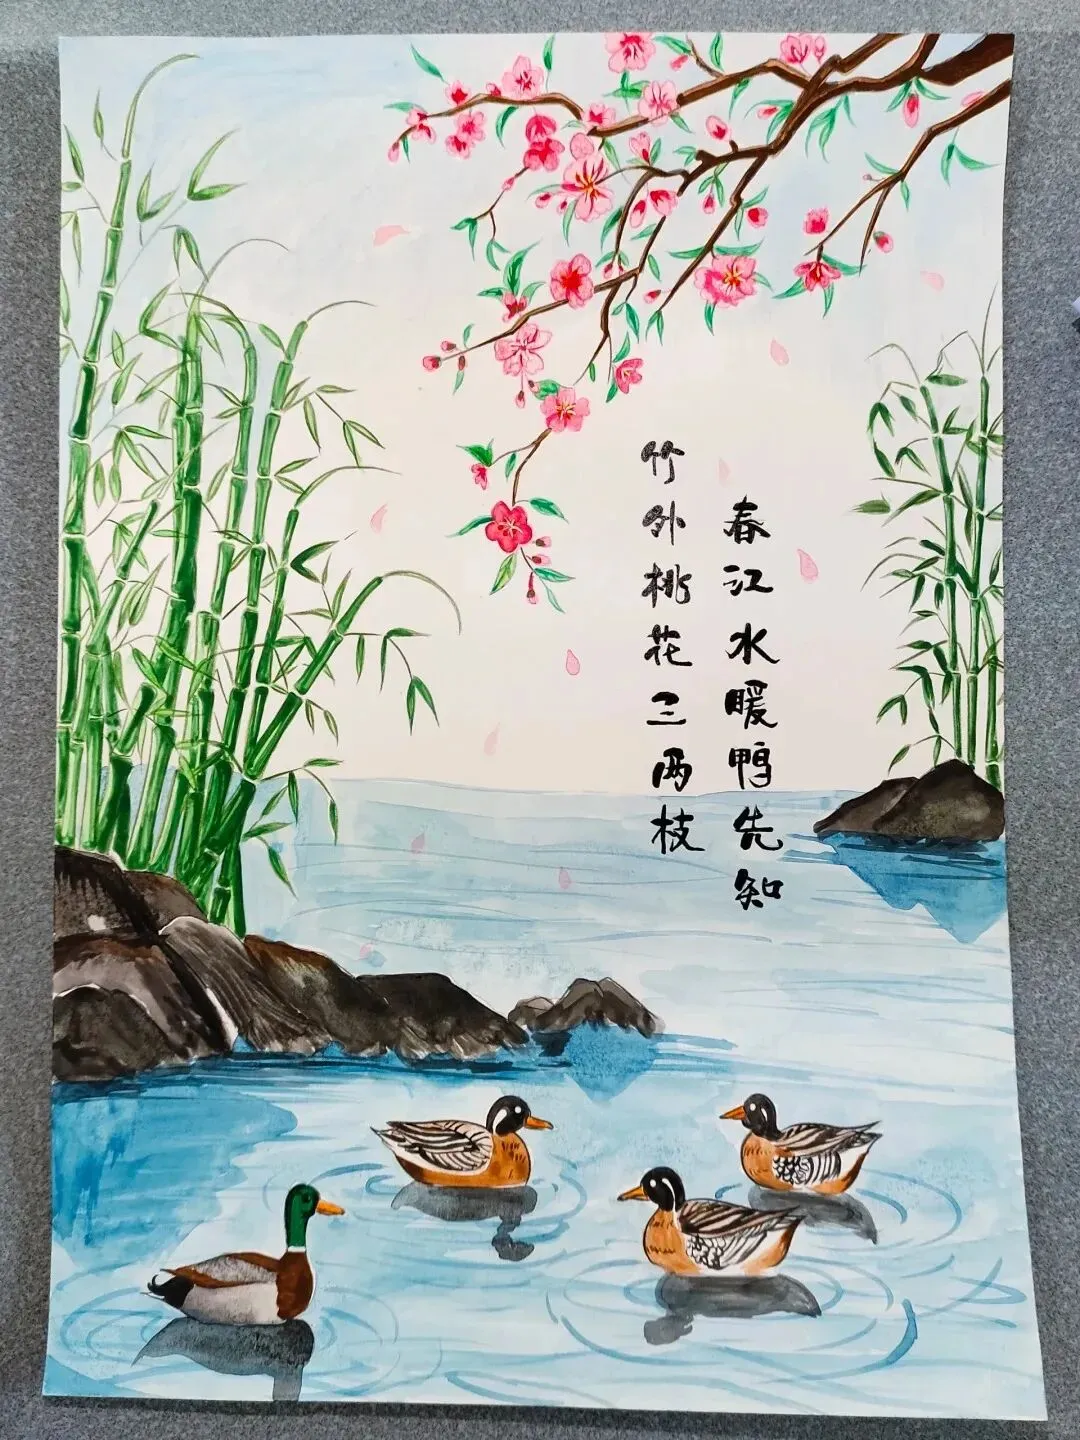 竹外桃花三两枝
春江水暖鸭先知